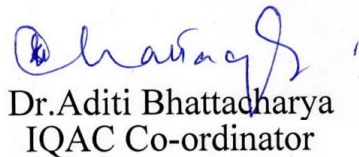 Dr.Aditi Bhattacharya
IQAC Co-ordinator